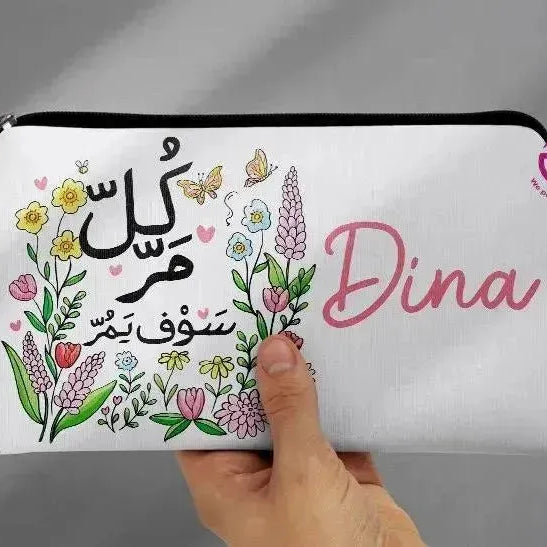 كُلّ
مَرّ
سَوْف يَمُرّ
Dina